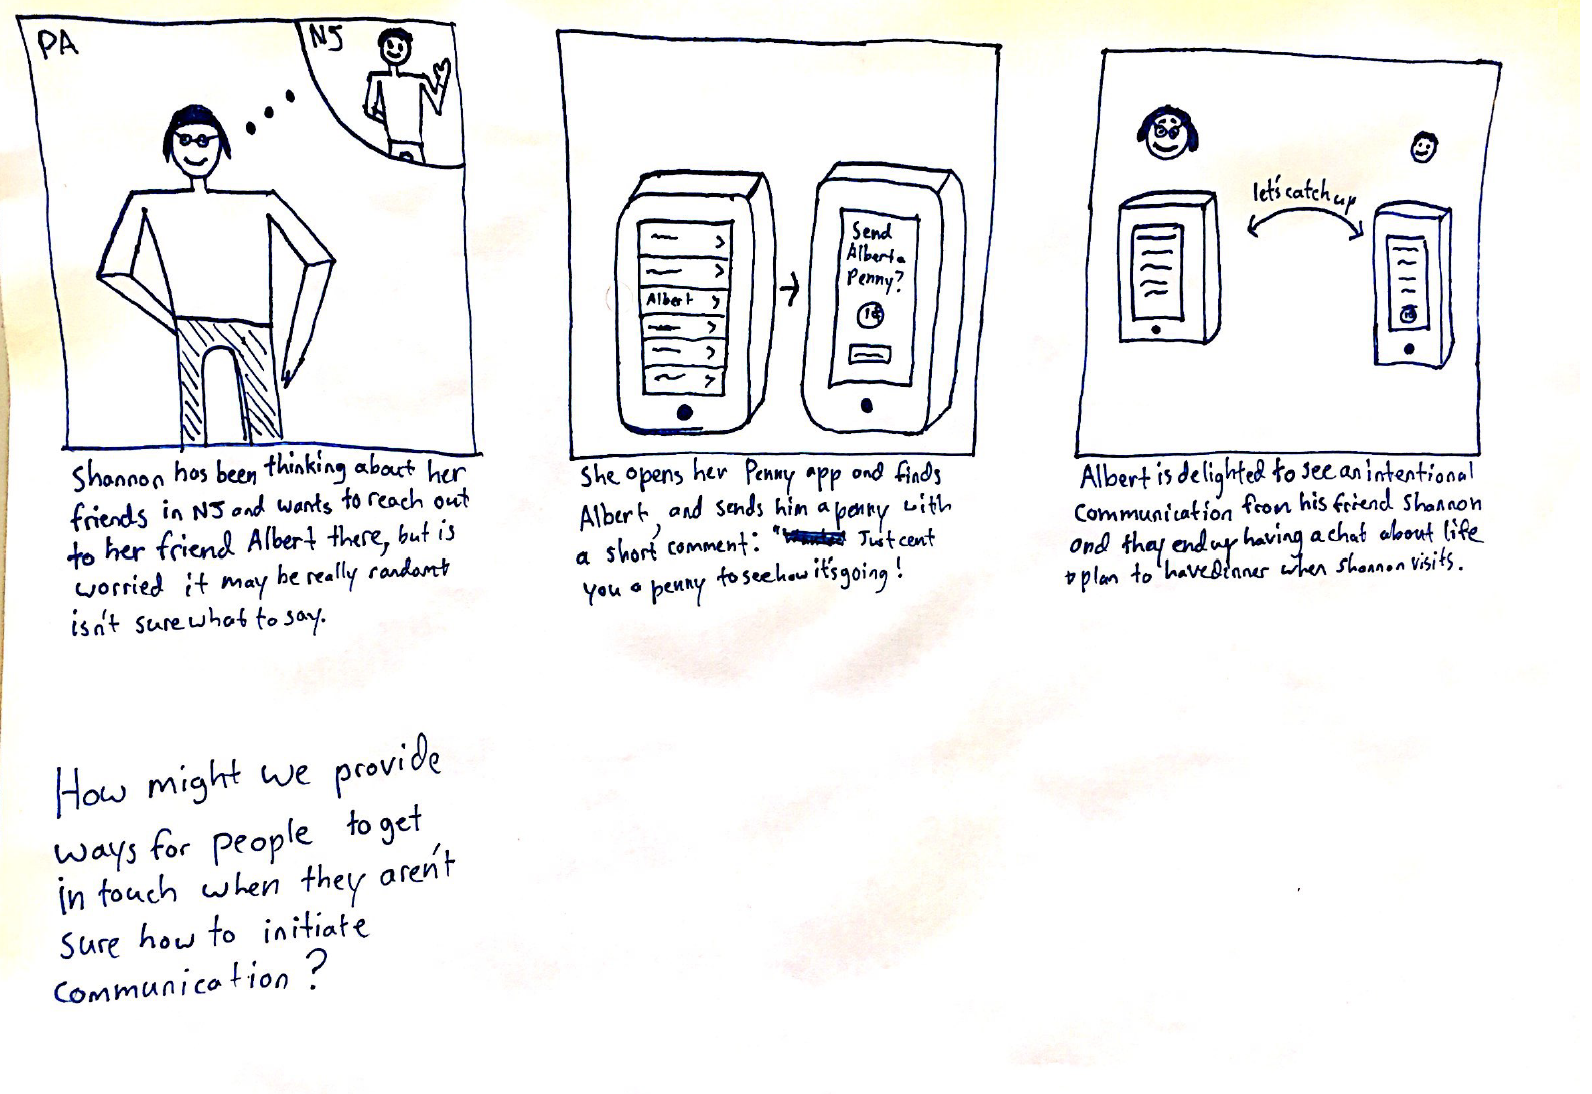 PA
NJ
Shannon has been thinking about her
friends in NJ and wants to reach out
to her friend Albert there, but is
worried it may be really random &
isn't sure what to say.
Albert
Send
Albert a
Penny?
1¢
She opens her Penny app and finds
Albert, and sends him a penny with
a short comment: " Just cent
you a penny to see how it's going!
let's catch up
1¢
Albert is delighted to see an intentional
communication from his friend Shannon
and they end up having a chat about life
& plan to have dinner when Shannon visits.
How might we provide
ways for people to get
in touch when they aren't
sure how to initiate
communication?